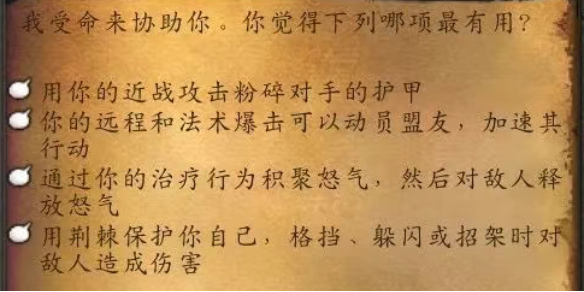 我受命来协助你。你觉得下列哪项最有用？
用你的近战攻击粉碎对手的护甲
你的远程和法术爆击可以动员盟友，加速其
行动
通过你的治疗行为积聚怒气，然后对敌人释
放怒气
用荆棘保护你自己，格挡、躲闪或招架时对
敌人造成伤害